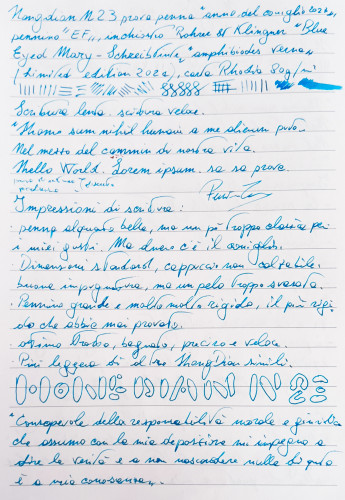 HongDian M23 prova penna "anno del coniglio 2023",
pennino "EF", inchiostro Rohrer & Klingner "Blue
Eyed Mary - Schreibtinte" "amphibiodes vernas"
(limited edition 2022), carta Rhodia 80g/m²
Scrittura lenta, scrittura veloce.
"Homo sum nihil humani a me alienum puto.
Nel mezzo del cammin di nostra vita.
Hello World. Lorem ipsum. sa sa prova.
Impressioni di scrittura:
· penna alquanto bella, ma un po' troppo classica per
i miei gusti. Ma dentro c'è il coniglio.
· Dimensioni standard, cappuccio non calzabile.
· buona impugnatura, ma un pelo troppo svasata.
· Pennino grande e molto molto rigido, il più rigi
do che abbia mai provato.
· ottimo tratto, bagnato, preciso e veloce.
· Più leggera di altre HongDian simili.
"Consapevole della responsabilità morale e giuridica
che assumo con la mia deposizione mi impegno a
dire la verità e a non nascondere nulla di quanto
è a mia conoscenza.